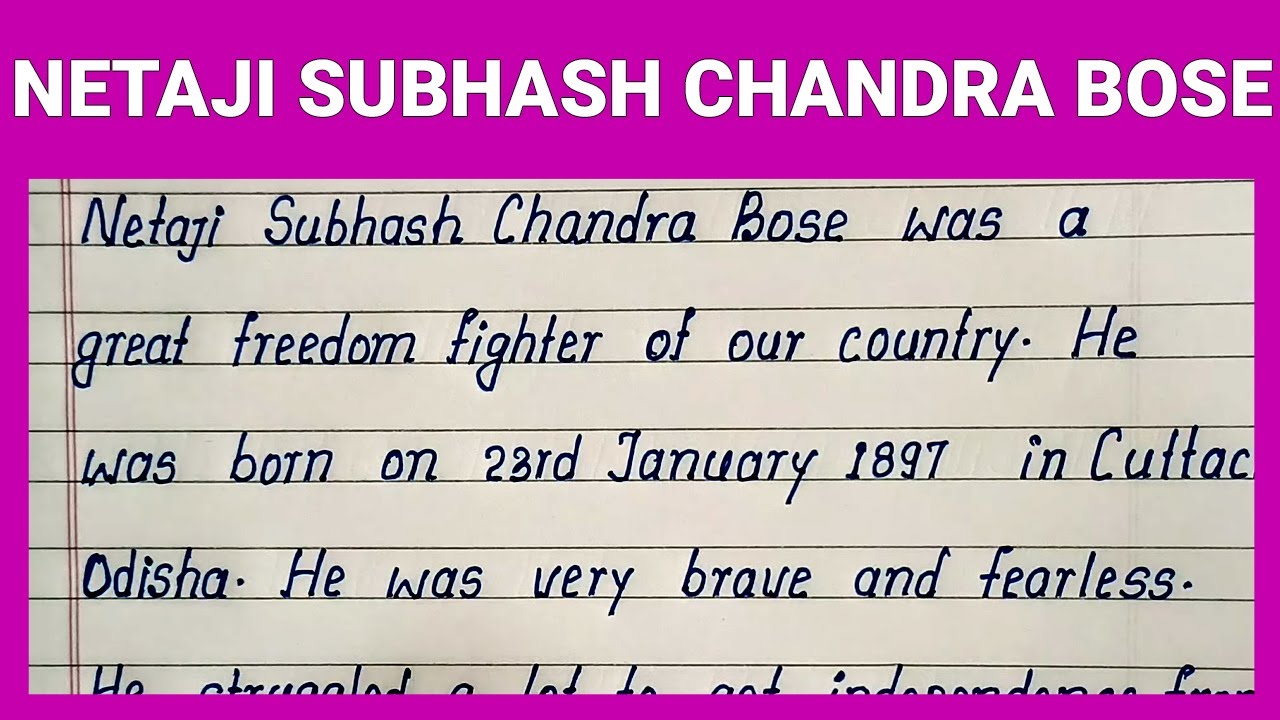 NETAJI SUBHASH CHANDRA BOSE
Netaji Subhash Chandra Bose was a
great freedom fighter of our country. He
was born on 23rd January 1897 in Cuttac
Odisha. He was very brave and fearless.
He struggled a lot to get independence from